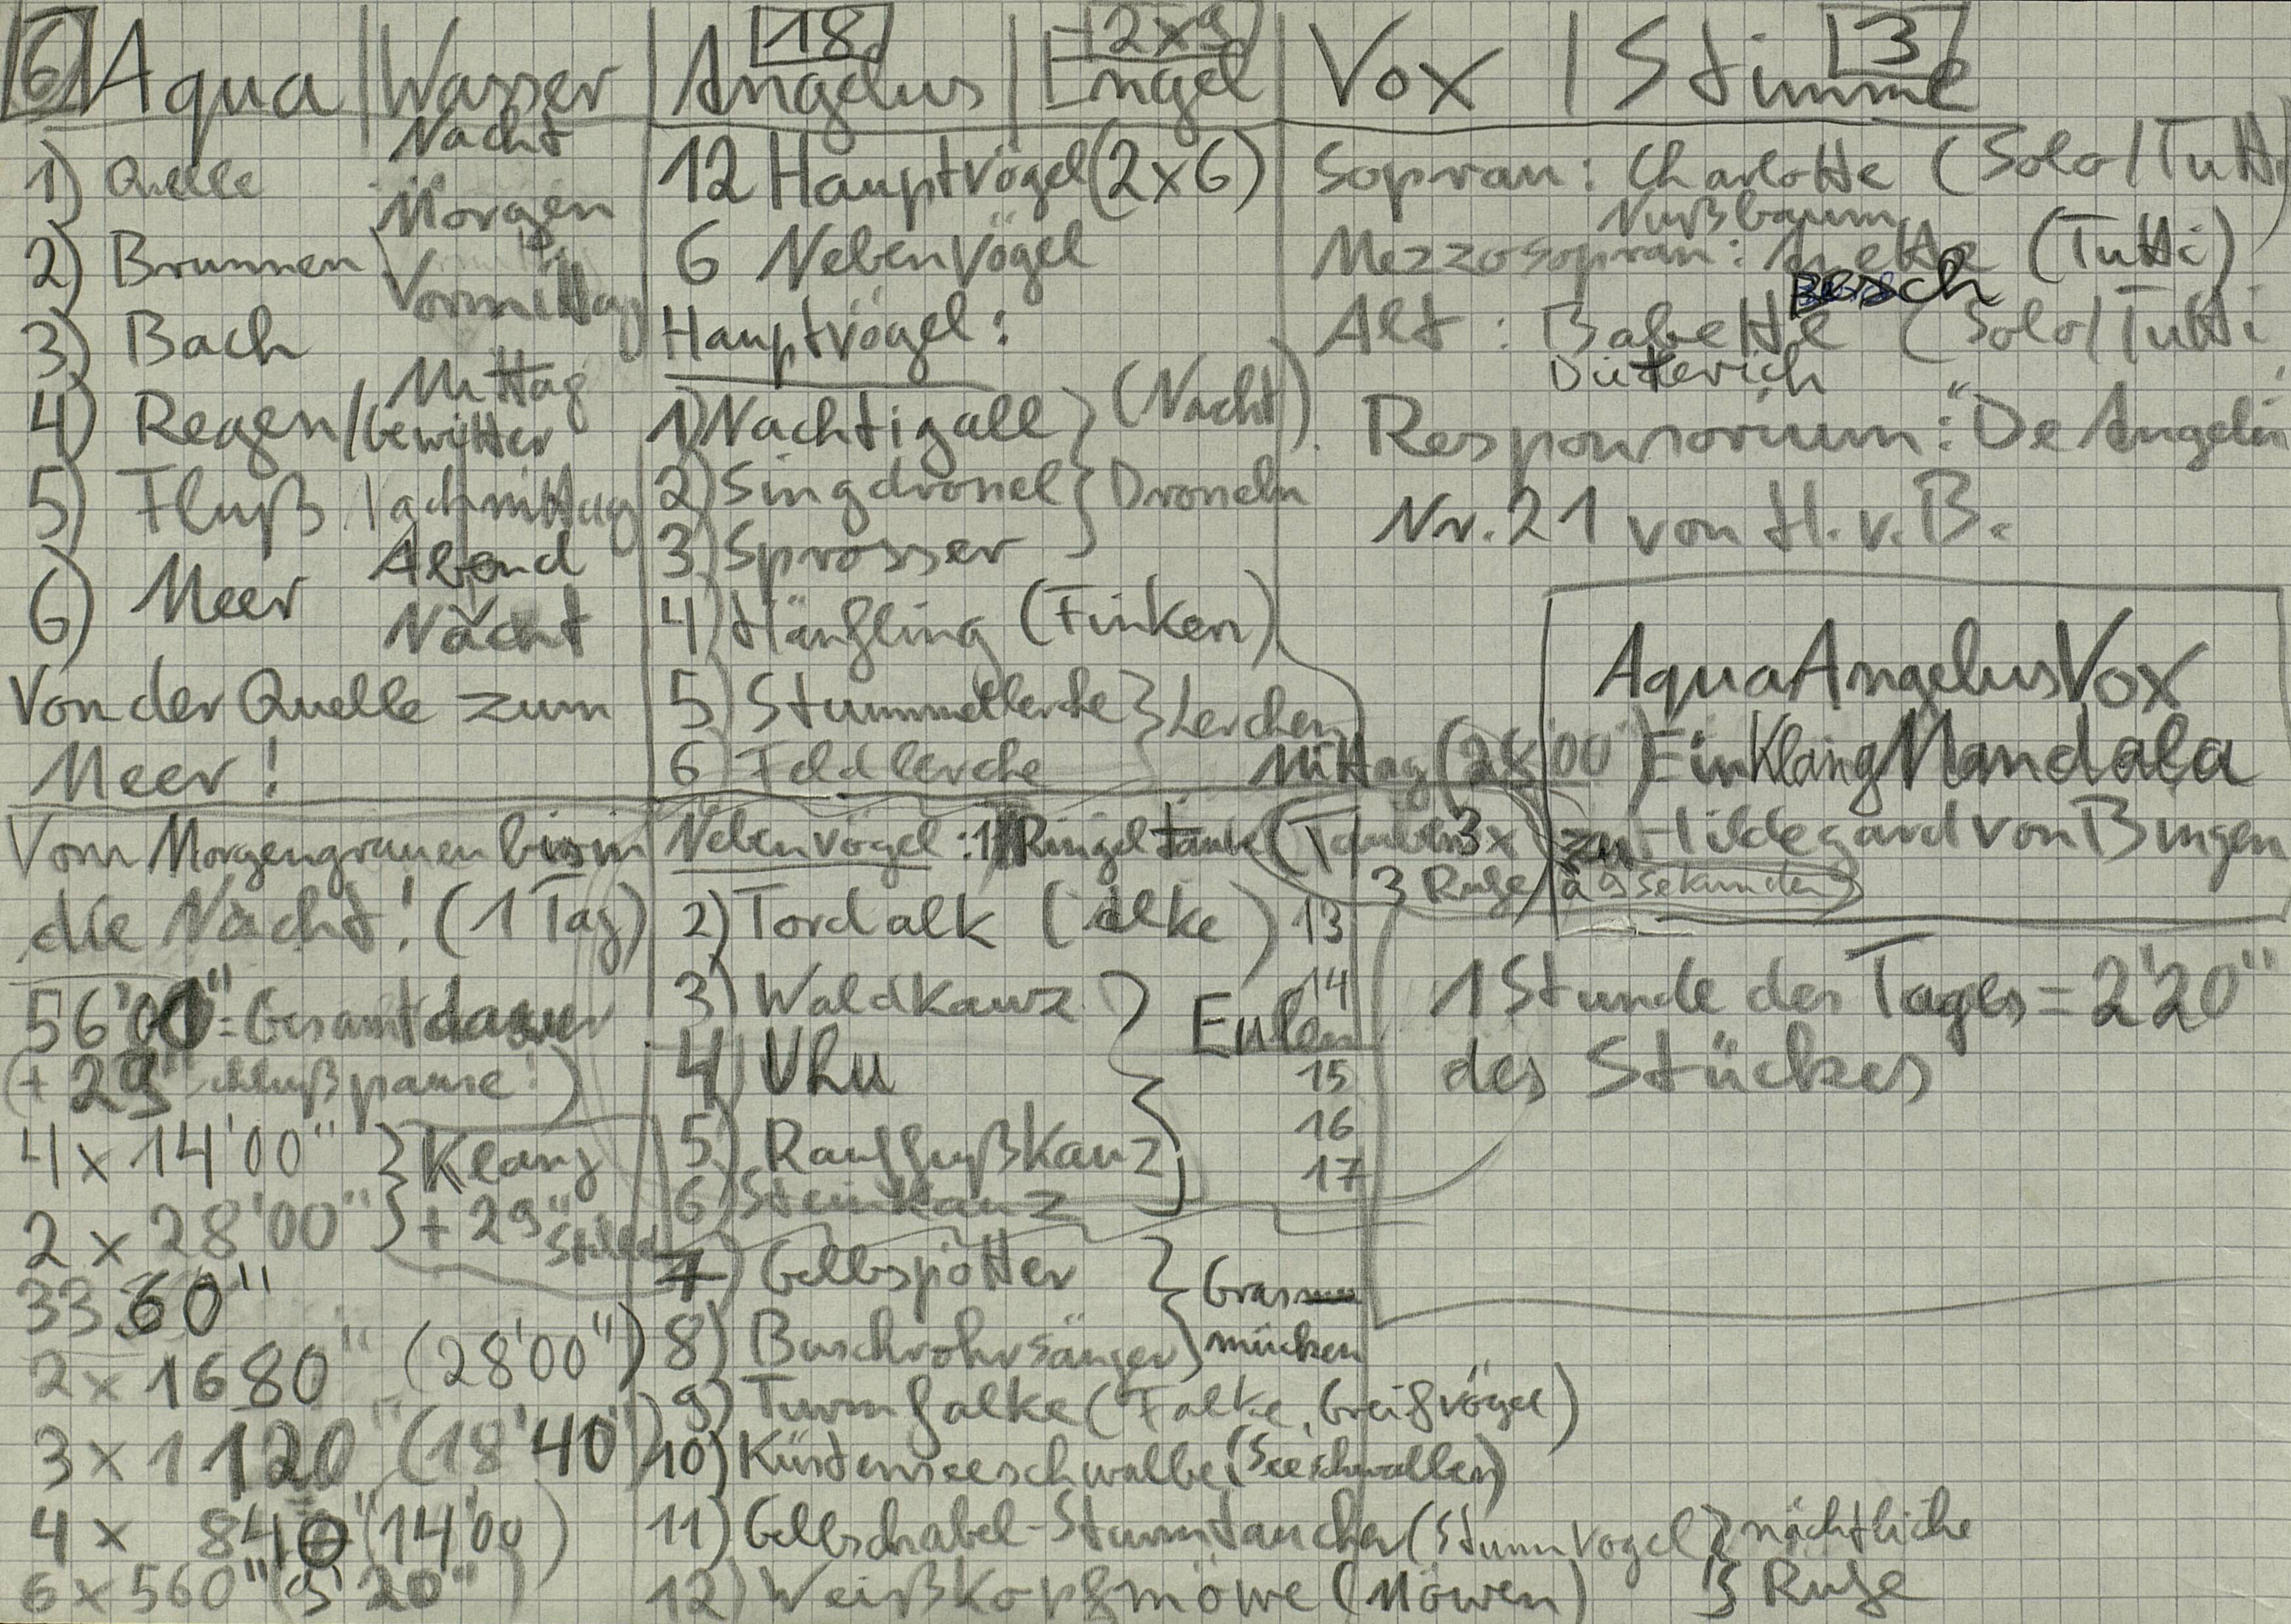 6 Aqua | Wasser
Nacht
1) Quelle
Morgen
2) Brunnen
Vormittag
3) Bach
Mittag
4) Regen/Gewitter
5) Fluß Nachmittag
Abend
6) Meer
Nacht
Von der Quelle zum
Meer!
Vom Morgengrauen bis in
die Nacht! (1 Tag)
56'00" = Gesamtdauer
(+ 29" Schlußpause!)
4 x 14'00" } Klang
2 x 28'00" } + 29" Stille
3360"
2 x 1680" (28'00")
3 x 1120" (18'40")
4 x 840" (14'00)
6 x 560" (9'20")
18 2x9
Angelus | Engel
12 Hauptvögel (2x6)
6 Nebenvögel
Hauptvögel:
1) Nachtigall } (Nacht)
2) Singdrossel } Drosseln
3) Sprosser
4) Hänfling (Finken)
5) Stummellerche } Lerchen
6) Feldlerche
Mittag (28'00")
Nebenvögel: 1) Ringeltaube (Tauben 3x
3 Rufe à 9 Sekunden)
2) Tordalk (Alke) 13
3) Waldkauz 14
Eulen
4) Uhu 15
5) Rauhfußkauz 16
6) Steinkauz 17
7) Gelbspötter } Grasmücken
8) Buschrohrsänger
9) Turmfalke (Falke, Greifvögel)
10) Küstenseeschwalbe (Seeschwalben)
11) Gelbschnabel-Sturmtaucher (Sturmvogel } nächtliche
12) Weißkopfmöwe (Möwen) } Rufe
3
Vox | Stimme
Sopran: Charlotte (Solo/Tutti)
Nußbaum
Mezzosopran: Anette (Tutti)
Alt: Babette (Solo/Tutti
Dieterich
Responsorium: "De Angelis
Nr. 21 von H. v. B.
AquaAngelusVox
EinKlangMandala
zu Hildegard von Bingen
1 Stunde des Tages = 2'20"
des Stückes